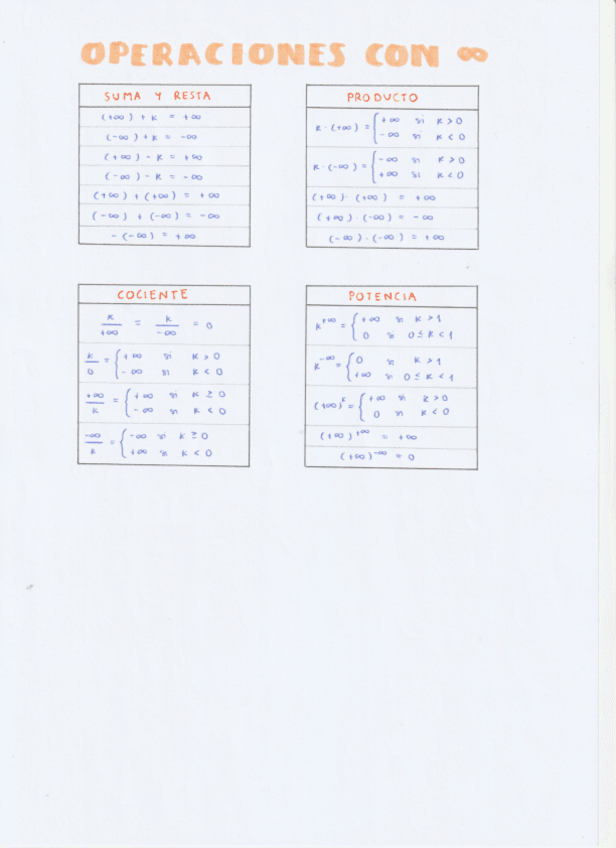 OPERACIONES CON ∞
SUMA Y RESTA
(+∞) + K = +∞
(-∞) + K = -∞
(+∞) - K = +∞
(-∞) - K = -∞
(+∞) + (+∞) = +∞
(-∞) + (-∞) = -∞
- (-∞) = +∞
PRODUCTO
K · (+∞) = { +∞ si K > 0
-∞ si K < 0
K · (-∞) = { -∞ si K > 0
+∞ si K < 0
(+∞) · (+∞) = +∞
(+∞) · (-∞) = -∞
(-∞) · (-∞) = +∞
COCIENTE
K/+∞ = K/-∞ = 0
K/0 = { +∞ si K > 0
-∞ si K < 0
+∞/K = { +∞ si K ≥ 0
-∞ si K < 0
-∞/K = { -∞ si K ≥ 0
+∞ si K < 0
POTENCIA
K^+∞ = { +∞ si K > 1
0 si 0 ≤ K < 1
K^-∞ = { 0 si K > 1
+∞ si 0 ≤ K < 1
(+∞)^K = { +∞ si K > 0
0 si K < 0
(+∞)^+∞ = +∞
(+∞)^-∞ = 0